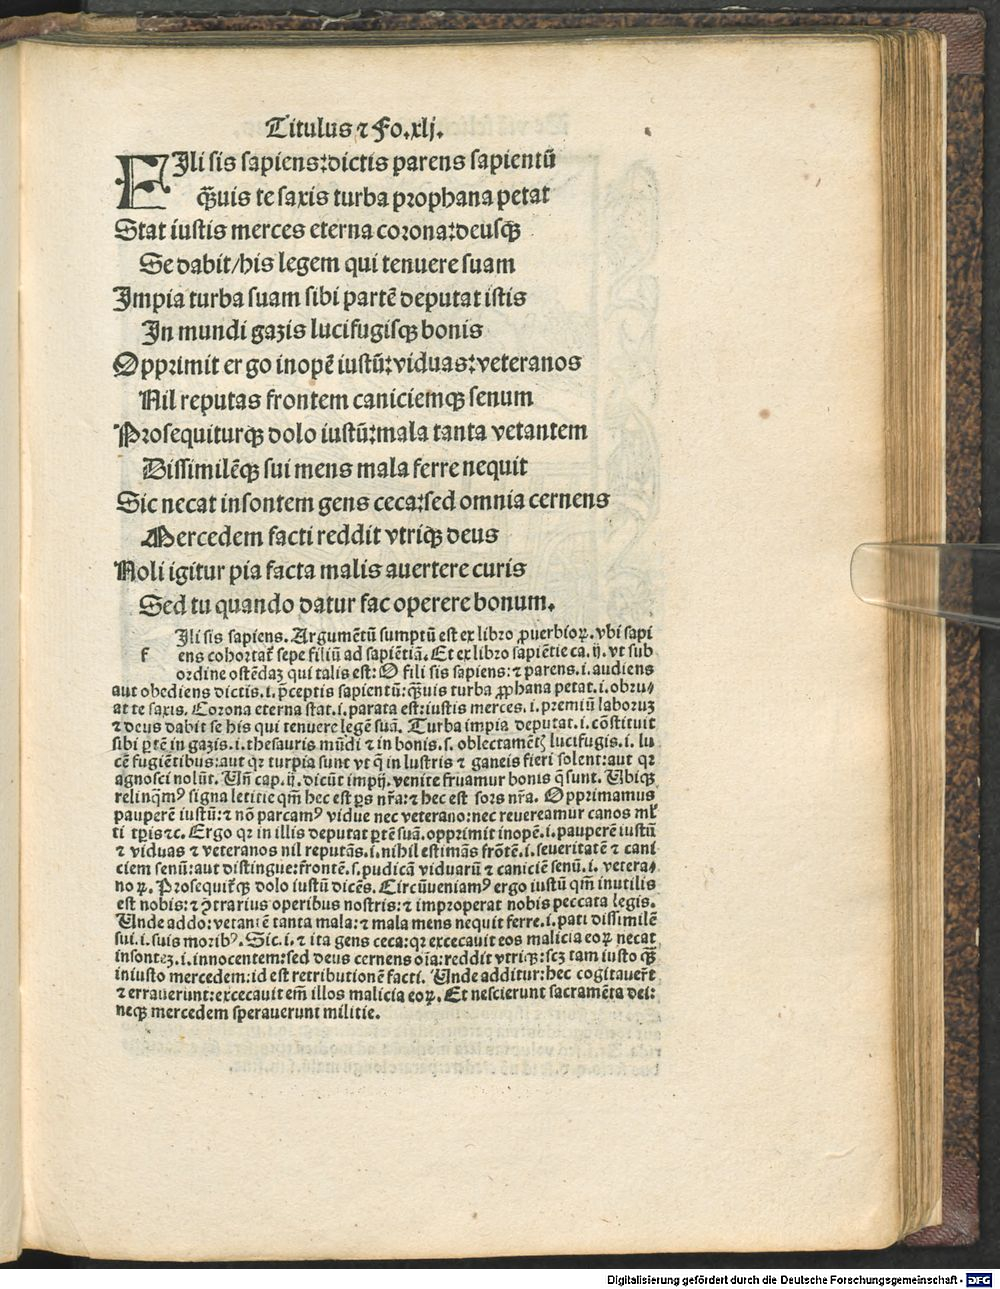 Titulus ⁊ Fo.xlj.
FIli sis sapiens:dictis parens sapientū
q̄uis te saxis turba prophana petat
Stat iustis merces eterna corona:deusqꝫ
Se dabit/his legem qui tenuere suam
Impia turba suam sibi partē deputat istis
In mundi gazis lucifugisqꝫ bonis
Opprimit er go inopē iustū:viduas:veteranos
Nil reputas frontem caniciemqꝫ senum
Prosequiturqꝫ dolo iustū:mala tanta vetantem
Dissimilēqꝫ sui mens mala ferre nequit
Sic necat insontem gens ceca:sed omnia cernens
Mercedem facti reddit vtriqꝫ deus
Noli igitur pia facta malis auertere curis
Sed tu quando datur fac operere bonum.
Ili sis sapiens. Argumētū sumptū est ex libro ꝓuerbioꝝ. vbi sapi
f ens cohortat᷑ sepe filiū ad sapiētiā. Et ex libro sapiētie ca. ij. vt sub
ordine ostēdaꝫ qui talis est: O fili sis sapiens: ⁊ parens .i. audiens
aut obediens dictis .i. p̄ceptis sapientū: q̄uis turba ꝓphana petat .i. obru⸗
at te saxis. Corona eterna stat .i. parata est: iustis merces .i. premiū laboruꝫ
⁊ deus dabit se his qui tenuere legē suā. Turba impia deputat .i. cōstituit
sibi ꝑtē in gazis .i. thesauris mūdi ⁊ in bonis .s. oblectamētꝭ lucifugis .i. lu
cē fugiētibus: aut qꝛ turpia sunt vt q̄ in lustris ⁊ ganeis fieri solent: aut qꝛ
agnosci nolūt. Vn̄ cap. ij. dicūt impij. venite fruamur bonis q̄ sunt. Vbiqꝫ
relinq̄mꝰ signa letitie qm̄ hec est ꝑs nr̄a: ⁊ hec est sors nr̄a. Opprimamus
pauperē iustū: ⁊ nō parcamꝰ vidue nec veterano: nec reuereamur canos ml̄
ti tꝑis ⁊c. Ergo qꝛ in illis deputat ꝑtē suā. opprimit inopē .i. pauperē iustū
⁊ viduas ⁊ veteranos nil reputās .i. nihil estimās frōtē .i. seueritatē ⁊ cani
ciem senū: aut distingue: frontē .s. pudicā viduarū ⁊ caniciē senū .i. vetera⸗
noꝝ. Prosequit᷑qꝫ dolo iustū dicēs. Circūueniamꝰ ergo iustū qm̄ inutilis
est nobis: ⁊ ꝯtrarius operibus nostris: ⁊ improperat nobis peccata legis.
Vnde addo: vetantē tanta mala: ⁊ mala mens nequit ferre .i. pati dissimilē
sui .i. suis moribꝰ. Sic .i. ⁊ ita gens ceca: qꝛ excecauit eos malicia eoꝝ necat
insonteꝫ .i. innocentem: sed deus cernens oīa: reddit vtriqꝫ: scꝫ tam iusto q̄ꝫ
iniusto mercedem: id est retributionē facti. Vnde additur: hec cogitauer̄t
⁊ errauerunt: excecauit em̄ illos malicia eoꝝ. Et nescierunt sacramēta dei:
neqꝫ mercedem sperauerunt militie.
Digitalisierung gefördert durch die Deutsche Forschungsgemeinschaft - DFG